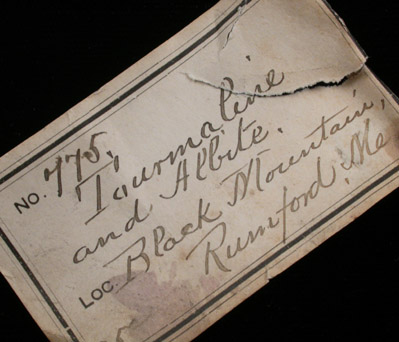 No. 775.
Tourmaline
and Albite.
Loc. Black Mountain,
Rumford, Me